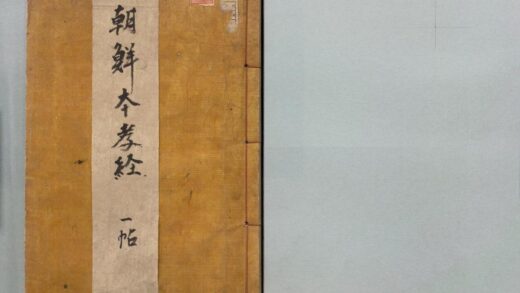 朝鮮本孝経 一帖